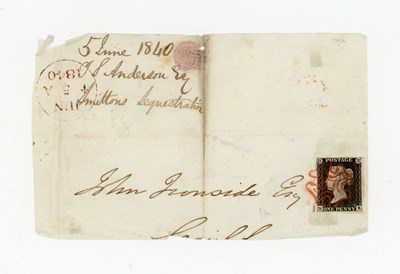 5 June 1840
Anderson Esq
Smittons Sequestration
1840
JUN
POSTAGE
ONE PENNY
John Ironside Esq